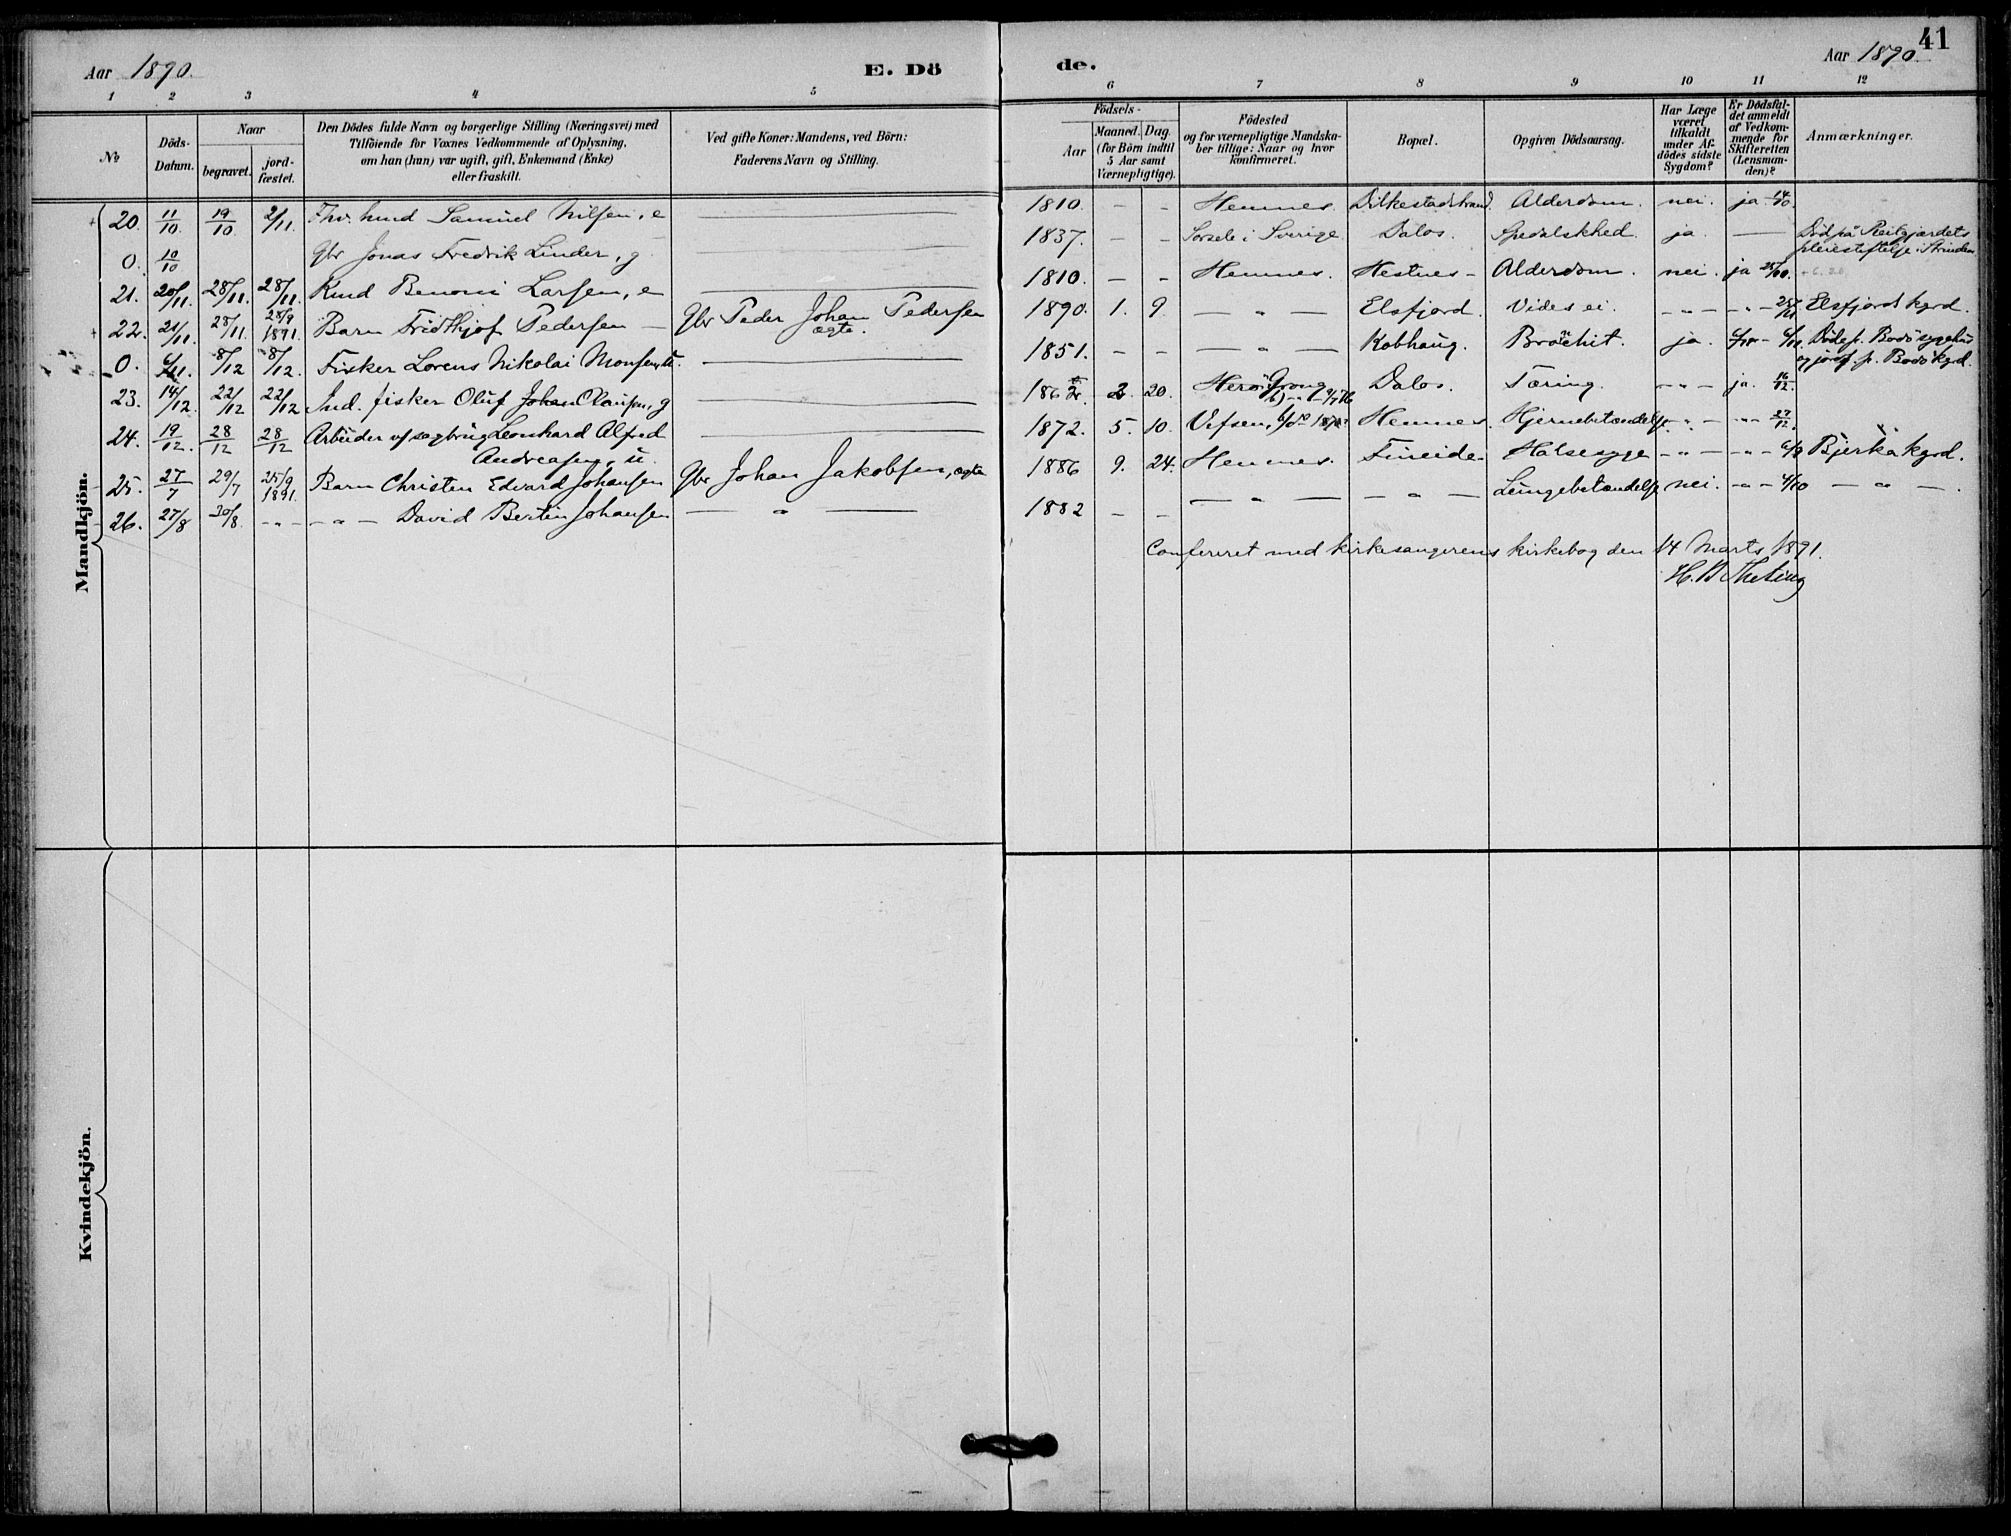 41
Aar 1890.
E. Döde.
Aar 1890
1 2 3 4 5 6 7 8 9 10 11 12
No
Döds-Datum.
Naar
begravet.
jord-fæstet.
Den Dödes fulde Navn og borgerlige Stilling (Næringsvei) med
Tilföiende for Voxnes Vedkommende af Oplysning,
om han (hun) var ugift, gift, Enkemand (Enke)
eller fraskilt.
Ved gifte Koner: Mandens, ved Börn:
Faderens Navn og Stilling.
Födsels-
Aar
Maaned. Dag.
(for Börn indtil
5 Aar samt
Værnepligtige).
Födested
og for værnepligtige Mandska-
ber tillige: Naar og hvor
konfirmeret.
Bopæl.
Opgiven Dödsaarsag.
Har Læge
været
tilkaldt
under Af-
dödes sidste
Sygdom?
Er Dödsfal-
det anmeldt
af Vedkom-
mende for
Skifteretten
(Lensman-
den)?
Anmærkninger.
Mandkjön.
20. 11/10 19/10 2/11 Samuel Nilsen, e 1810. – – Hemnes. Alderdom. nei. ja 14/10.
0. 10/10 Gbr Jonas Fredrik Linder, g 1837. – – Sorsele i Sverige Dalos. Spedalskhed ja — Död på Reitgjærdets
pleiestiftelse. Strinden
21. 20/11. 28/11. 28/11. Knud Benoni Larsen, e 1810. – – Hemnes. Hestnes – Alderdom. nei. ja
22. 21/11. 28/11. 28/9 1891. Barn Fridthjof Pedersen — Gbr Peder Johan Pedersen
ægte. 1890. 1. 9. — " — Elsfjord. Vides ei. – " – – " – Elsfjord kgrd.
0. 6/11. 8/12 8/12. Fisker Lorens Nikolai Monsen, u. 1851. – – — " — Kobhaug. Bröchit. ja. Döde p. Bodö sygehus
og jordf. p. Bodö kgrd.
23. 14/12. 22/12 22/12 Ind. fisker Oluf Johan Clausen, g 20. Herö Dalos. Tæring. – " – ja. 16/12.
24. 19/12. 28/12 28/12 Arbeider v/ sagbrug Leonhard Alfred
Andreasen, u. 1872. 5. 10. Vefsen, Hemnes. Hjernebetændelse – " – – " – 27/12.
25. 27/7 29/7 25/9 1891. Barn Christen Edvard Johansen Gbr Johan Jakobsen, ægte 1886 9. 24. Hemnes. Fineide Halsesyge – " – – " – Bjerka kgrd.
26. 27/8 30/8. – " – – " – David Bertin Johansen — " — 1882 – – — " — – " – Lungebetændelse nei. – " – 4/10 — " —.
Confereret med kirkesangerens kirkebog den 14 Marts 1891.
Kvindekjön.